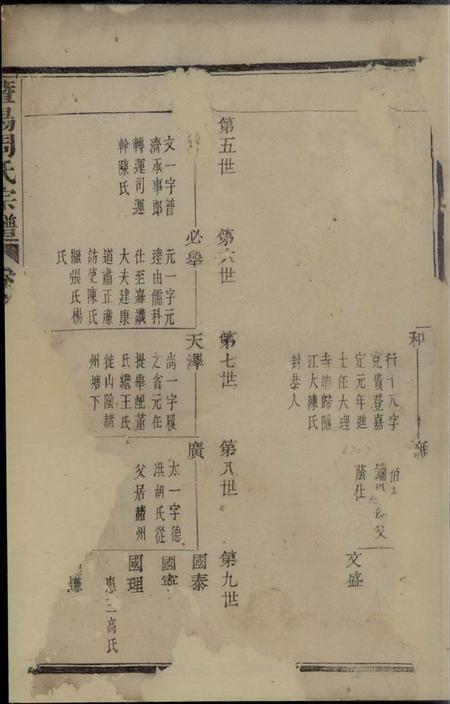 暨陽周氏宗譜
和
行十九字
克貴登嘉
定元年進
士任大理
寺
江大陳氏
封恭人
蔭仕
父
文盛
第五世
第六世
第七世
第八世
第九世
文一字普
濟承事郎
轉運司運
幹陳氏
必舉
元一字元
達由儒科
仕至嘉議
大夫建康
道肅正廉
訪使陳氏
繼張氏楊
氏
天澤
尚一字履
之省元任
提舉配董
氏繼王氏
徙山陰諸
州塘下
廣
太一字德
洪胡氏從
父居諸州
國泰
國寧
國理
惠二高氏